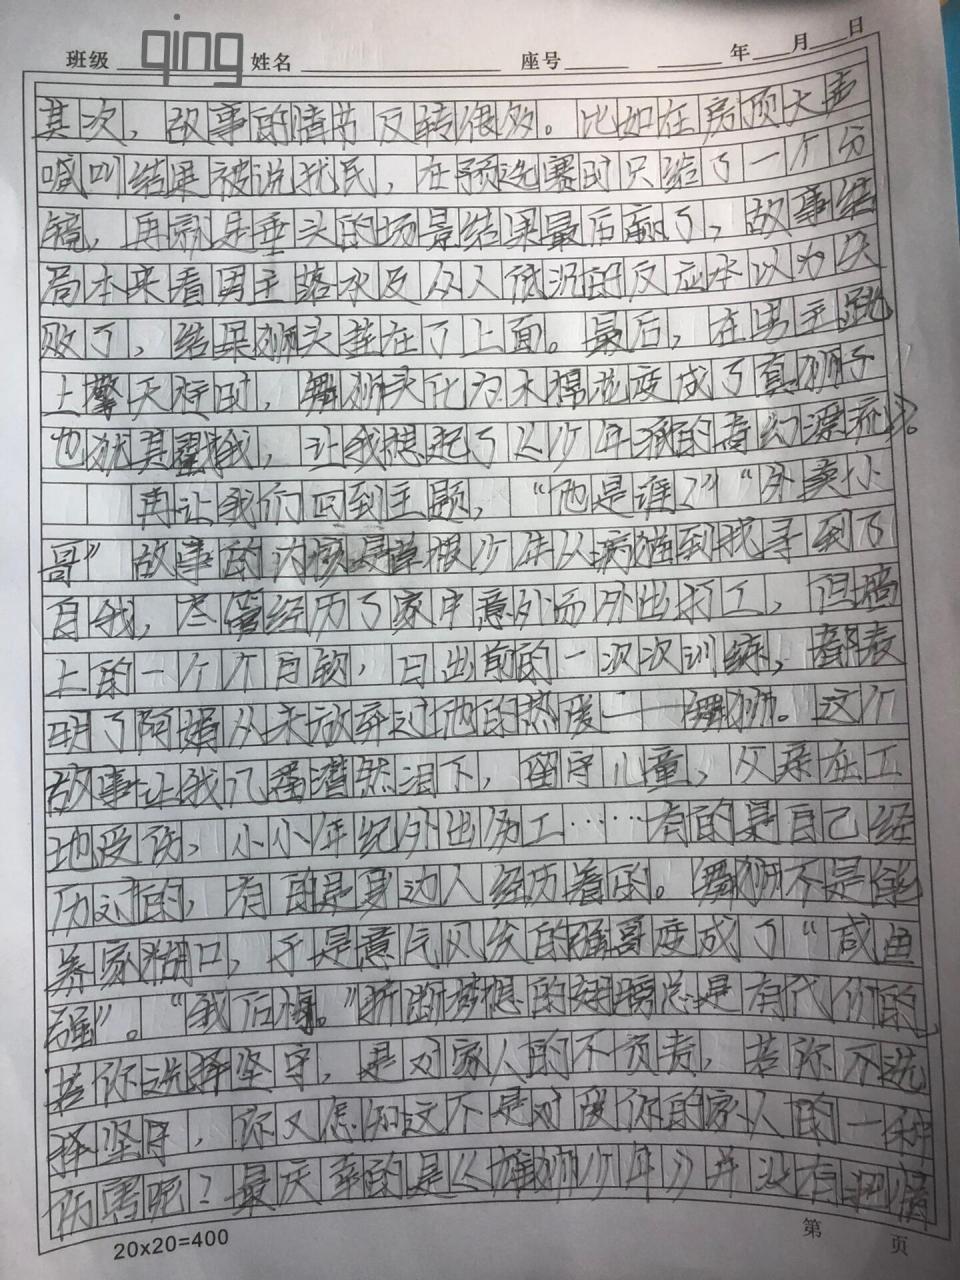 班级 qing 姓名 座号 年 月 日
其次，故事的情节反转很多。比如在房顶大声
喊叫结果被说扰民，在预选赛时只给了一个分
镜，再就是垂头的场景结果最后赢了，故事结
局本来看男主落水及众人低沉的反应本以为失
败了，结果狮头挂在了上面。最后，在男主跳
上擎天柱时，舞狮头化为木棉花变成了真狮子
也犹其戳我，让我想起了《少年派的奇幻漂流》。
再让我们回到主题，“他是谁？”“外卖小
哥”故事的内核是草根少年从病猫到找寻到了
自我，尽管经历了家中意外而外出打工，但墙
上的一个个自软，日出前的一次次训练，都表
明了阿娟从未放弃过他的热爱——舞狮。这个
故事让我几番潸然泪下，留守儿童、父亲在工
地受伤、小小年纪外出务工……有的是自己经
历过的，有的是身边人经历着的。舞狮不是能
养家糊口，于是意气风发的强哥变成了“咸鱼
强”。“我后悔。”折断梦想的翅膀总是有代价的，
若你选择坚守，是对家人的不负责，若你不选
择坚守，你又怎知这不是对爱你的家人的一种
伤害呢？最庆幸的是《雄狮少年》并没有把情
20×20=400 第 页